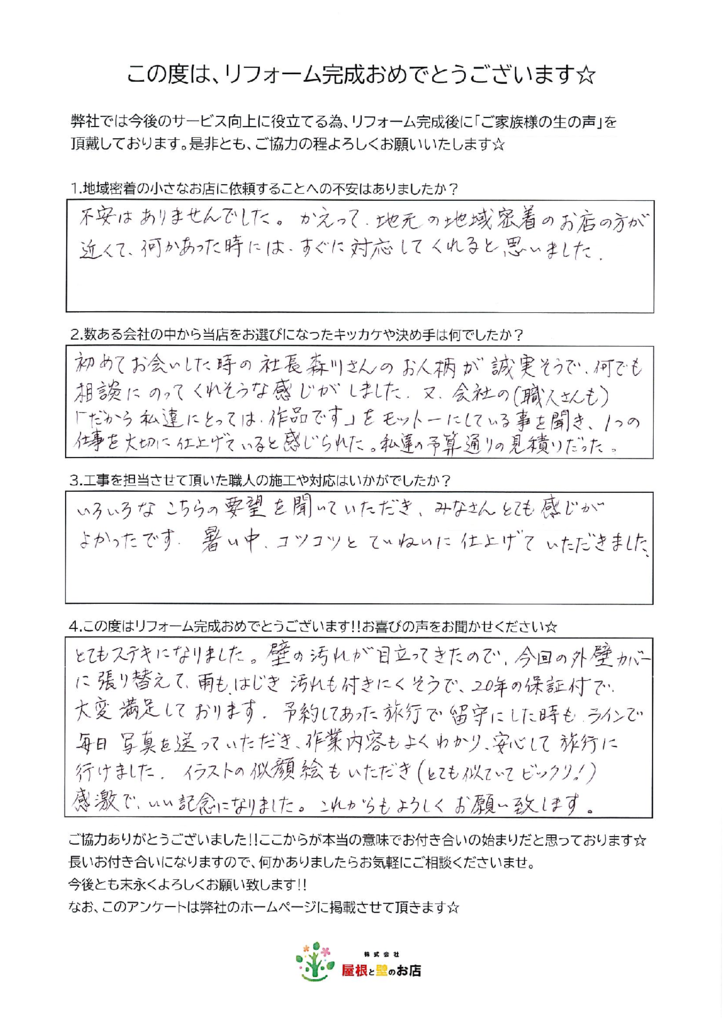 この度は、リフォーム完成おめでとうございます☆
弊社では今後のサービス向上に役立てる為、リフォーム完成後に「ご家族様の生の声」を
頂戴しております。是非とも、ご協力の程よろしくお願いいたします☆
1.地域密着の小さなお店に依頼することへの不安はありましたか？
不安はありませんでした。かえって、地元の地域密着のお店の方が
近くて、何かあった時には、すぐに対応してくれると思いました。
2.数ある会社の中から当店をお選びになったキッカケや決め手は何でしたか？
初めてお会いした時の社長森川さんのお人柄が誠実そうで、何でも
相談にのってくれそうな感じがしました。又、会社の(職人さんも)
「だから私達にとっては、作品です」をモットーにしている事を聞き、1つの
仕事を大切に仕上げていると感じられた。私達の予算通りの見積りだった。
3.工事を担当させて頂いた職人の施工や対応はいかがでしたか？
いろいろなこちらの要望を聞いていただき、みなさんとても感じが
よかったです。暑い中、コツコツとていねいに仕上げていただきました。
4.この度はリフォーム完成おめでとうございます!!お喜びの声をお聞かせください☆
とてもステキになりました。壁の汚れが目立ってきたので、今回の外壁カバー
に張り替えて、雨もはじき汚れも付きにくそうで、20年の保証付で、
大変満足しております。予約してあった旅行で留守にした時も、ラインで
毎日写真を送っていただき、作業内容もよくわかり、安心して旅行に
行けました。イラストの似顔絵もいただき(とても似ていてビックリ!)
感激で、いい記念になりました。これからもよろしくお願い致します。
ご協力ありがとうございました!!ここからが本当の意味でお付き合いの始まりだと思っております☆
長いお付き合いになりますので、何かありましたらお気軽にご相談くださいませ。
今後とも末永くよろしくお願い致します!!
なお、このアンケートは弊社のホームページに掲載させて頂きます☆
株式会社
屋根と壁のお店